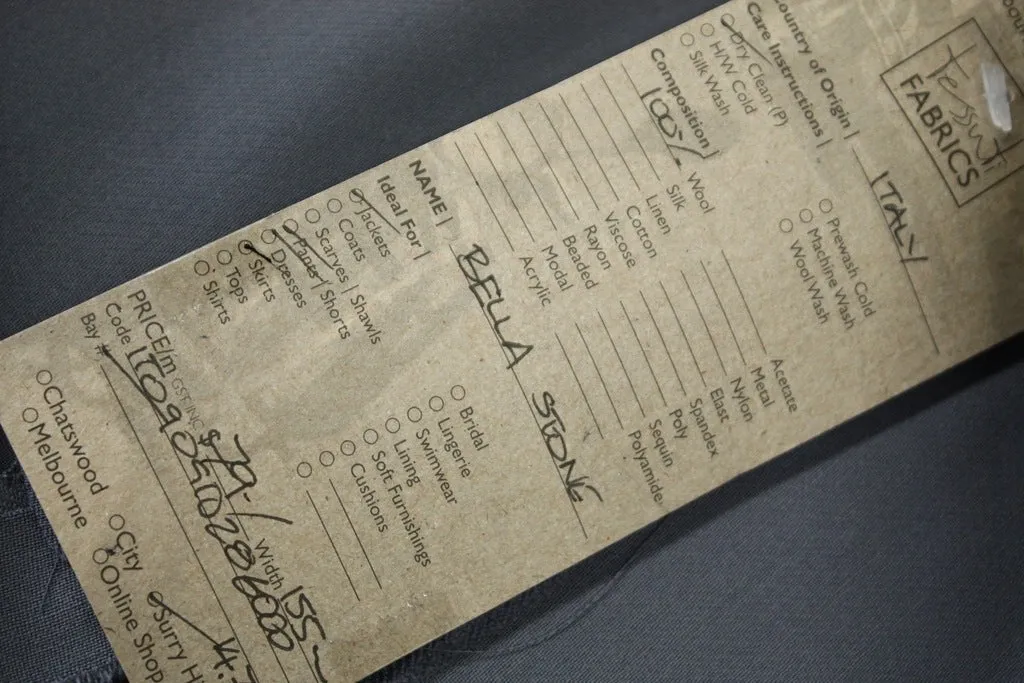 Tessuti
FABRICS
Country of Origin | ITALY
Care Instructions |
Dry Clean (P)
H/W Cold
Silk Wash
Prewash Cold
Machine Wash
Wool Wash
Composition |
100% Wool
Silk
Linen
Cotton
Viscose
Rayon
Beaded
Modal
Acrylic
Acetate
Metal
Nylon
Elast
Spandex
Poly
Sequin
Polyamide
NAME | BELLA STONE
Ideal For |
Jackets
Coats
Scarves | Shawls
Pants | Shorts
Dresses
Skirts
Tops
Shirts
Bridal
Lingerie
Swimwear
Lining
Soft Furnishings
Cushions
PRICE/m GST INC $79/ Width 155
Code
Bay #
Chatswood
Melbourne
City
Online Shop
Surry